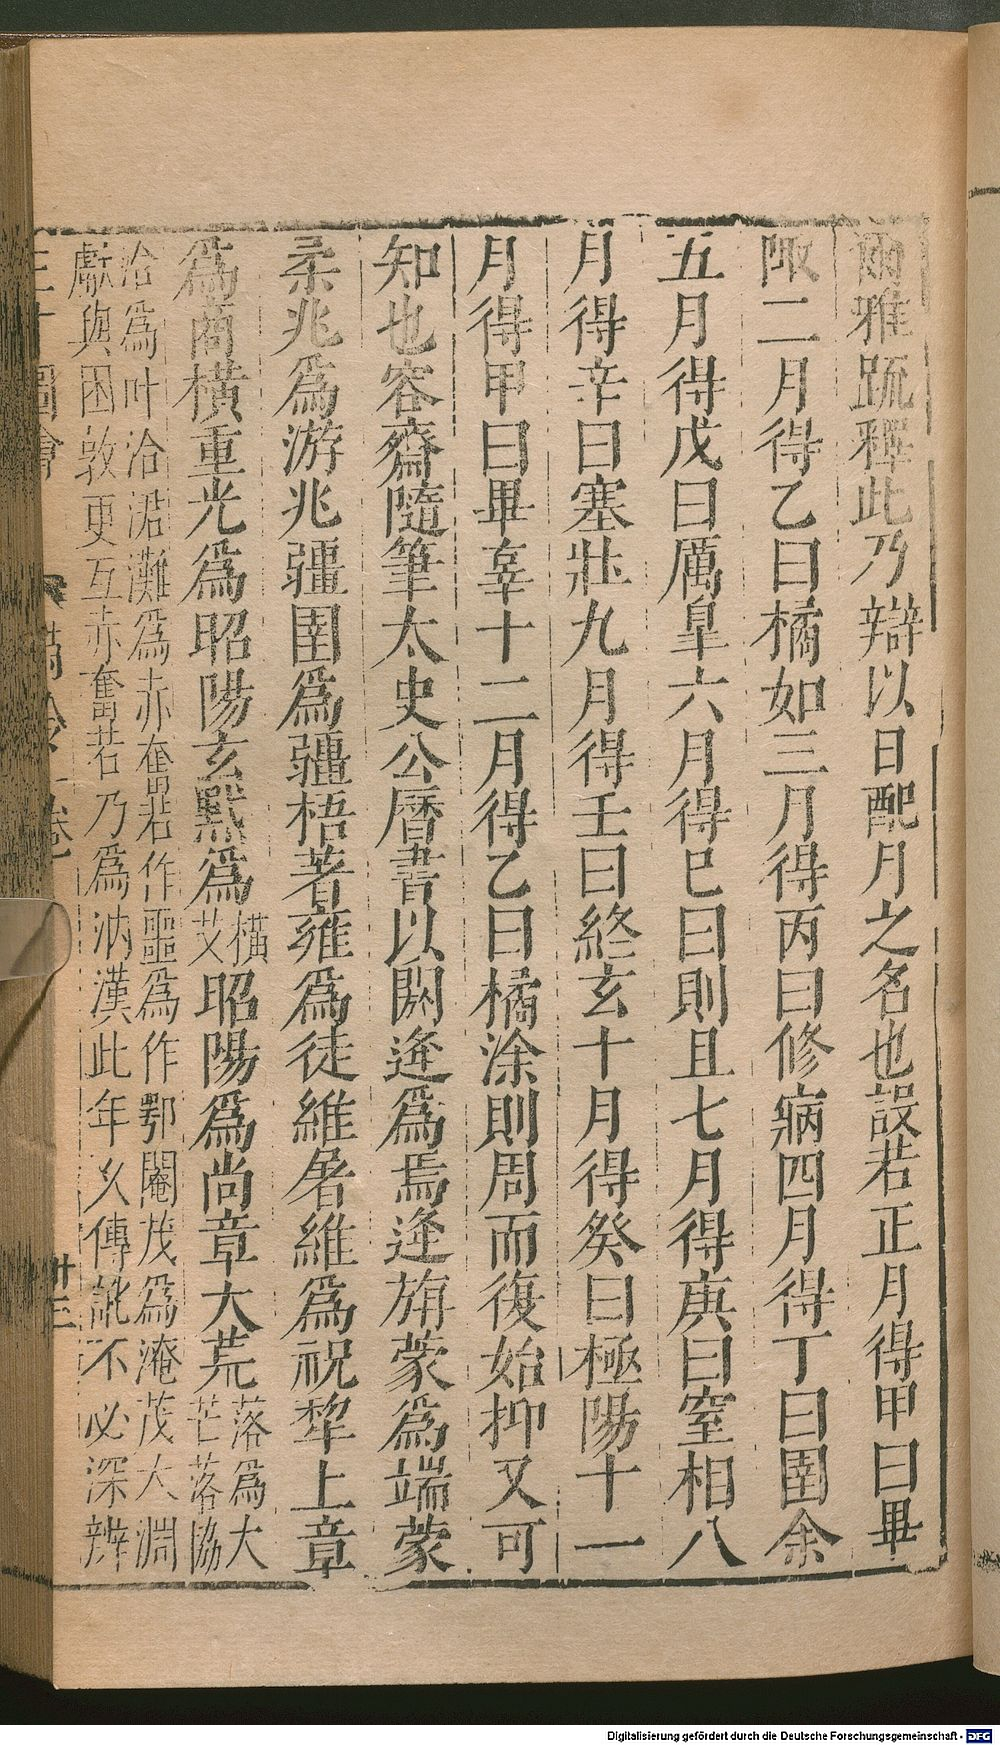 爾雅䟽釋此乃辯以日配月之名也設若正月得甲曰畢
陬二月得乙曰橘如三月得丙曰修病四月得丁曰圉余
五月得戊曰厲皐六月得巳曰則且七月得庚曰窒相八
月得辛曰塞壯九月得壬曰終玄十月得癸曰極陽十一
月得甲曰畢辜十二月得乙曰橘涂則周而復始抑又可
知也容齋隨筆太史公曆書以閼逢爲焉逢旃蒙爲端蒙
柔兆爲游兆彊圉爲彊梧著雍爲徒維屠維爲祝犂上章
爲商橫重光爲昭陽玄黓爲橫艾昭陽爲尚章大荒落爲大芒落協
洽爲叶洽涒灘爲赤奮若作噩爲作鄂閹茂爲淹茂大淵
獻與困敦更互赤奮若乃爲汭漢此年久傳訛不必深辨
三才圖會
卷一
卅三
Digitalisierung gefördert durch die Deutsche Forschungsgemeinschaft - DFG